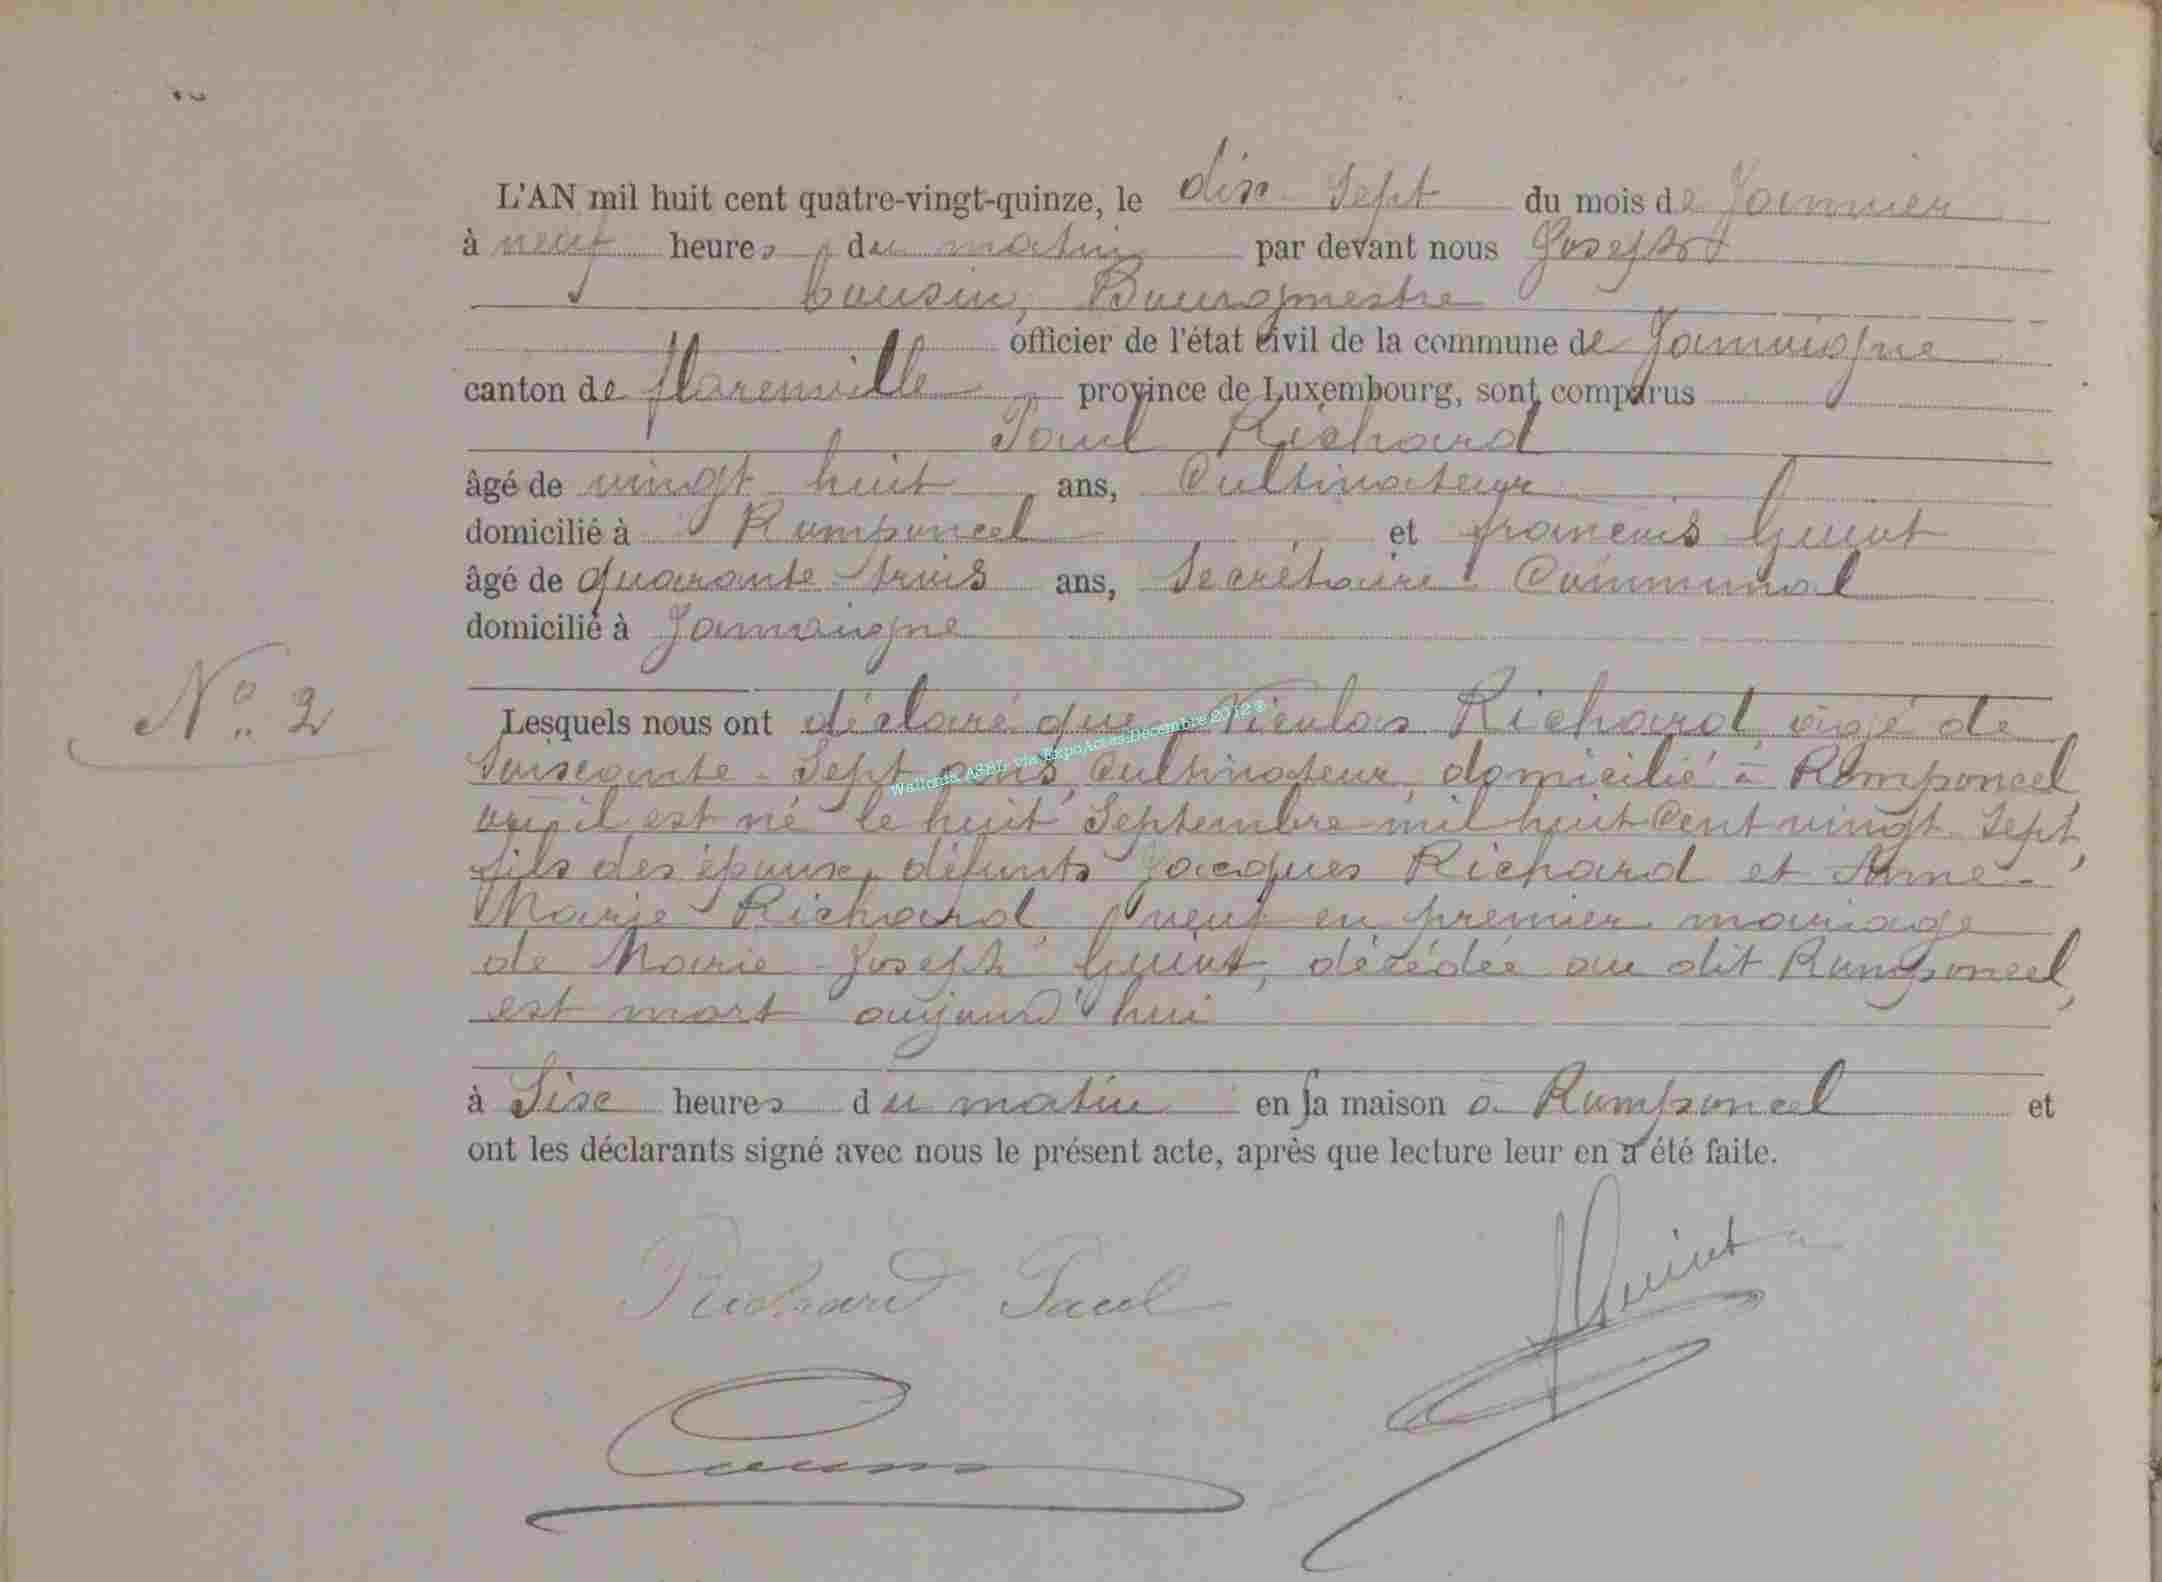 L'AN mil huit cent quatre-vingt-quinze, le dix-Sept du mois de Janvier
à neuf heures du matin par devant nous Joseph
Cousin, Bourgmestre
officier de l'état civil de la commune de Jamoigne
canton de florenville province de Luxembourg, sont comparus
Paul Richard
âgé de vingt huit ans, Cultivateur
domicilié à Romponcel et francois Guiot
âgé de quarante-trois ans, Secrétaire Communal
domicilié à Jamoigne
N° 2
Lesquels nous ont déclaré que Nicolas Richard, âgé de
Soixante-Sept ans, Cultivateur, domicilié à Romponcel,
où il est né le huit Septembre mil huit Cent vingt-Sept,
fils des époux défunts Jacques Richard et Anne-
Marie Richard, veuf en premier mariage
de Marie-Joseph Guiot, décédée au dit Romponcel,
est mort aujourd'hui
à Six heures du matin en sa maison à Romponcel et
ont les déclarants signé avec nous le présent acte, après que lecture leur en a été faite.
Richard Paul
fGuiot
Cousin
Wallonia ASBL via ExpoActes Décembre 2012 ®